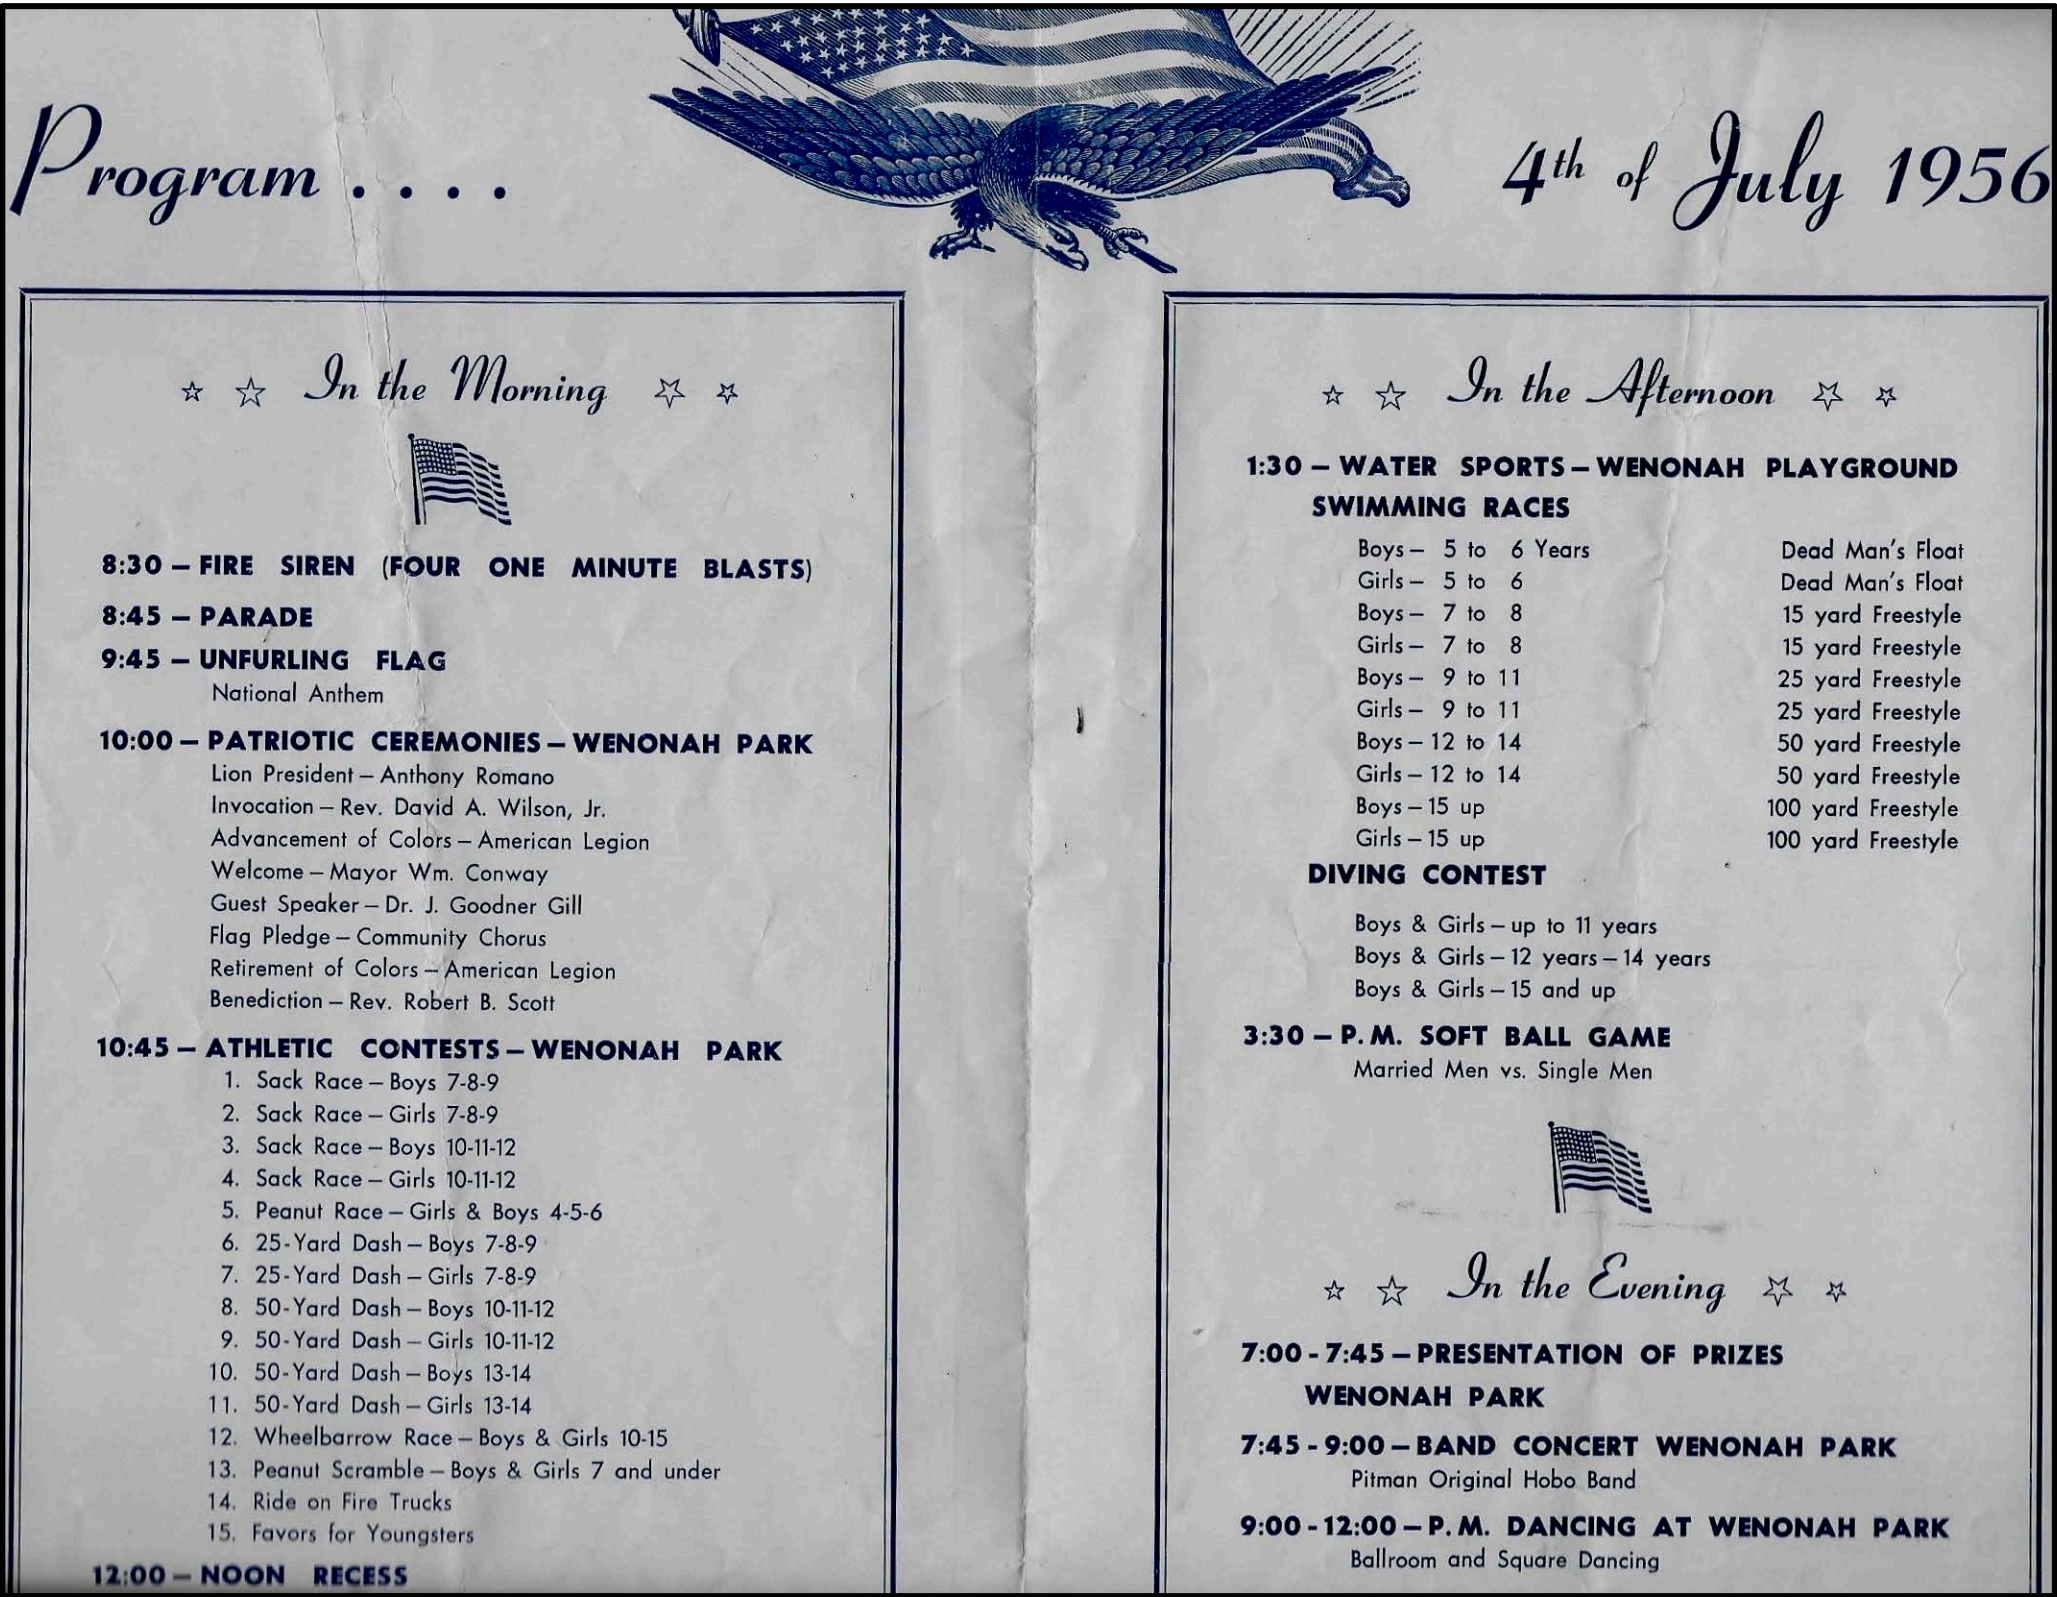 Program . . . .
4th of July 1956
In the Morning
8:30 – FIRE SIREN (FOUR ONE MINUTE BLASTS)
8:45 – PARADE
9:45 – UNFURLING FLAG
National Anthem
10:00 – PATRIOTIC CEREMONIES – WENONAH PARK
Lion President – Anthony Romano
Invocation – Rev. David A. Wilson, Jr.
Advancement of Colors – American Legion
Welcome – Mayor Wm. Conway
Guest Speaker – Dr. J. Goodner Gill
Flag Pledge – Community Chorus
Retirement of Colors – American Legion
Benediction – Rev. Robert B. Scott
10:45 – ATHLETIC CONTESTS – WENONAH PARK
1. Sack Race – Boys 7-8-9
2. Sack Race – Girls 7-8-9
3. Sack Race – Boys 10-11-12
4. Sack Race – Girls 10-11-12
5. Peanut Race – Girls & Boys 4-5-6
6. 25-Yard Dash – Boys 7-8-9
7. 25-Yard Dash – Girls 7-8-9
8. 50-Yard Dash – Boys 10-11-12
9. 50-Yard Dash – Girls 10-11-12
10. 50-Yard Dash – Boys 13-14
11. 50-Yard Dash – Girls 13-14
12. Wheelbarrow Race – Boys & Girls 10-15
13. Peanut Scramble – Boys & Girls 7 and under
14. Ride on Fire Trucks
15. Favors for Youngsters
12:00 – NOON RECESS
In the Afternoon
1:30 – WATER SPORTS – WENONAH PLAYGROUND
SWIMMING RACES
Boys – 5 to 6 Years Dead Man's Float
Girls – 5 to 6 Dead Man's Float
Boys – 7 to 8 15 yard Freestyle
Girls – 7 to 8 15 yard Freestyle
Boys – 9 to 11 25 yard Freestyle
Girls – 9 to 11 25 yard Freestyle
Boys – 12 to 14 50 yard Freestyle
Girls – 12 to 14 50 yard Freestyle
Boys – 15 up 100 yard Freestyle
Girls – 15 up 100 yard Freestyle
DIVING CONTEST
Boys & Girls – up to 11 years
Boys & Girls – 12 years – 14 years
Boys & Girls – 15 and up
3:30 – P.M. SOFT BALL GAME
Married Men vs. Single Men
In the Evening
7:00 - 7:45 – PRESENTATION OF PRIZES
WENONAH PARK
7:45 - 9:00 – BAND CONCERT WENONAH PARK
Pitman Original Hobo Band
9:00 - 12:00 – P.M. DANCING AT WENONAH PARK
Ballroom and Square Dancing